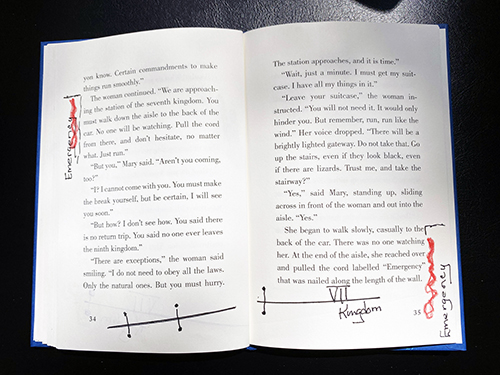 you know. Certain commandments to make
things run smoothly.”
The woman continued. “We are approach-
ing the station of the seventh kingdom. You
must walk down the aisle to the back of the
car. No one will be watching. Pull the cord
from there, and don’t hesitate, no matter
what. Just run.”
“But you,” Mary said. “Aren’t you coming,
too?”
“I? I cannot come with you. You must make
the break yourself, but be certain, I will see
you soon.”
“But how? I don’t see how. You said there
is no return trip. You said no one ever leaves
the ninth kingdom.”
“There are exceptions,” the woman said
smiling. “I do not need to obey all the laws.
Only the natural ones. But you must hurry.
34
Emergency
The station approaches, and it is time.”
“Wait, just a minute. I must get my suit-
case. I have all my things in it.”
“Leave your suitcase,” the woman in-
structed. “You will not need it. It would only
hinder you. But remember, run, run like the
wind.” Her voice dropped. “There will be a
brightly lighted gateway. Do not take that. Go
up the stairs, even if they look black, even
if there are lizards. Trust me, and take the
stairway?”
“Yes,” said Mary, standing up, sliding
across in front of the woman and out into the
aisle. “Yes.”
She began to walk slowly, casually to the
back of the car. There was no one watching
her. At the end of the aisle, she reached over
and pulled the cord labelled “Emergency”
that was nailed along the length of the wall.
VII
Kingdom
35
Emergency